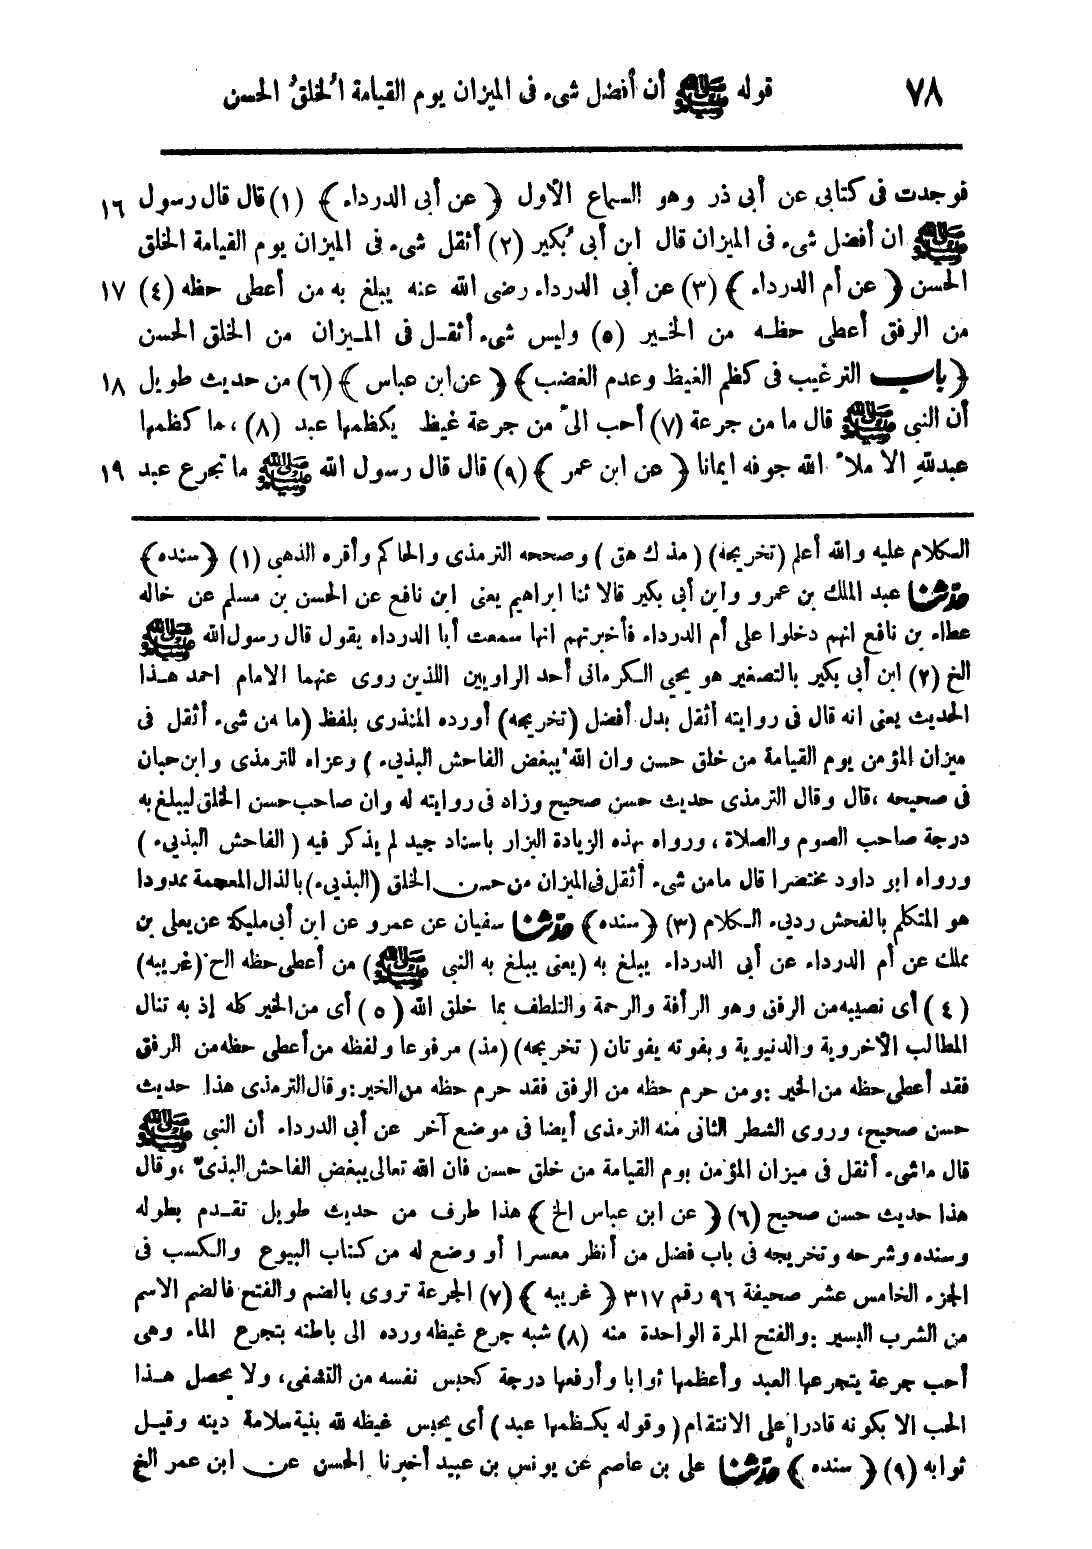 ٧٨ قوله ﷺ أن أفضل شىء فى الميزان يوم القيامة الُخلقُ الحسن
فوجدت فى كتابى عن أبى ذر وهو السماع الأول ﴿ عن أبى الدرداء ﴾ (١) قال قال رسول ١٦
ﷺ ان أفضل شىء فى الميزان قال ابن أبى بُكير (٢) أثقل شىء فى الميزان يوم القيامة الخلق
الحسن ﴿ عن أم الدرداء ﴾ (٣) عن أبى الدرداء رضى الله عنه يبلغ به من أعطى حظه (٤) ١٧
من الرفق أعطى حظه من الخير (٥) وليس شىء أثقل فى الميزان من الخلق الحسن
﴿ باب الترغيب فى كظم الغيظ وعدم الغضب ﴾ ﴿ عن ابن عباس ﴾ (٦) من حديث طويل ١٨
أن النبى ﷺ قال ما من جرعة (٧) أحب الىّ من جرعة غيظ يكظمها عبد (٨) ، ما كظمها
عبد للهِ الا ملأ الله جوفه ايمانا ﴿ عن ابن عمر ﴾ (٩) قال قال رسول الله ﷺ ما تجرع عبد ١٩
الكلام عليه والله أعلم (تخريجه) ( مذ ك هق ) وصححه الترمذى والحاكم وأقره الذهبى (١) ﴿ سنده ﴾
حدثنا عبد الملك بن عمرو وابن أبى بكير قالا ثنا ابراهيم يعنى ابن نافع عن الحسن بن مسلم عن خاله
عطاء بن نافع انهم دخلوا على أم الدرداء فأخبرتهم انها سمعت أبا الدرداء يقول قال رسول الله ﷺ
الخ (٢) ابن أبى بكير بالتصغير هو يحيى الكرمانى أحد الراويين اللذين روى عنهما الامام احمد هذا
الحديث يعنى انه قال فى روايته أثقل بدل أفضل (تخريجه) أورده المنذرى بلفظ (ما من شىء أثقل فى
ميزان المؤمن يوم القيامة من خلق حسن وان الله يبغض الفاحش البذىء ) وعزاه للترمذى وابن حبان
فى صحيحه ، قال وقال الترمذى حديث حسن صحيح وزاد فى روايته له وان صاحب حسن الخلق ليبلغ به
درجة صاحب الصوم والصلاة ، ورواه بهذه الزيادة البزار باسناد جيد لم يذكر فيه ( الفاحش البذىء )
ورواه ابو داود مختصرا قال مامن شىء أثقل فى الميزان من حسن الخلق (البذىء) بالذال المعجمة ممدودا
هو المتكلم بالفحش ردىء الكلام (٣) ﴿ سنده ﴾ حدثنا سفيان عن عمرو عن ابن أبى مليكة عن يعلى بن
مملك عن أم الدرداء عن أبى الدرداء يبلغ به (يعنى يبلغ به النبى ﷺ) من أعطى حظه الخ (غريبه)
(٤) أى نصيبه من الرفق وهو الرأفة والرحمة والتلطف بما خلق الله (٥) أى من الخير كله إذ به تنال
المطالب الأخروية والدنيوية وبفوته يفوتان ( تخريجه) (مذ) مرفوعا ولفظه من أعطى حظه من الرفق
فقد أعطى حظه من الخير : ومن حرم حظه من الرفق فقد حرم حظه من الخير : وقال الترمذى هذا حديث
حسن صحيح، وروى الشطر الثانى منه الترمذى أيضا فى موضع آخر عن أبى الدرداء أن النبى ﷺ
قال ما شىء أثقل فى ميزان المؤمن يوم القيامة من خلق حسن فان الله تعالى يبغض الفاحش البذىء ، وقال
هذا حديث حسن صحيح (٦) ﴿ عن ابن عباس الخ ﴾ هذا طرف من حديث طويل تقدم بطوله
وسنده وشرحه وتخريجه فى باب فضل من أنظر معسرا أو وضع له من كتاب البيوع والكسب فى
الجزء الخامس عشر صحيفة ٩٦ رقم ٣١٧ ﴿ غريبه ﴾ (٧) الجرعة تروى بالضم والفتح فالضم الاسم
من الشرب اليسير : والفتح المرة الواحدة منه (٨) شبه جرع غيظه ورده الى باطنه بتجرع الماء وهى
أحب جرعة يتجرعها العبد وأعظمها ثوابا وأرفعها درجة كحبس نفسه من التشفى، ولا يحصل هذا
الحب الا بكونه قادرا على الانتقام ( وقوله يكظمها عبد ) أى يحبس غيظه لله بنية سلامة دينه وقيل
ثوابه (٩) ﴿ سنده ﴾ حدثنا على بن عاصم عن يونس بن عبيد أخبرنا الحسن عن ابن عمر الخ